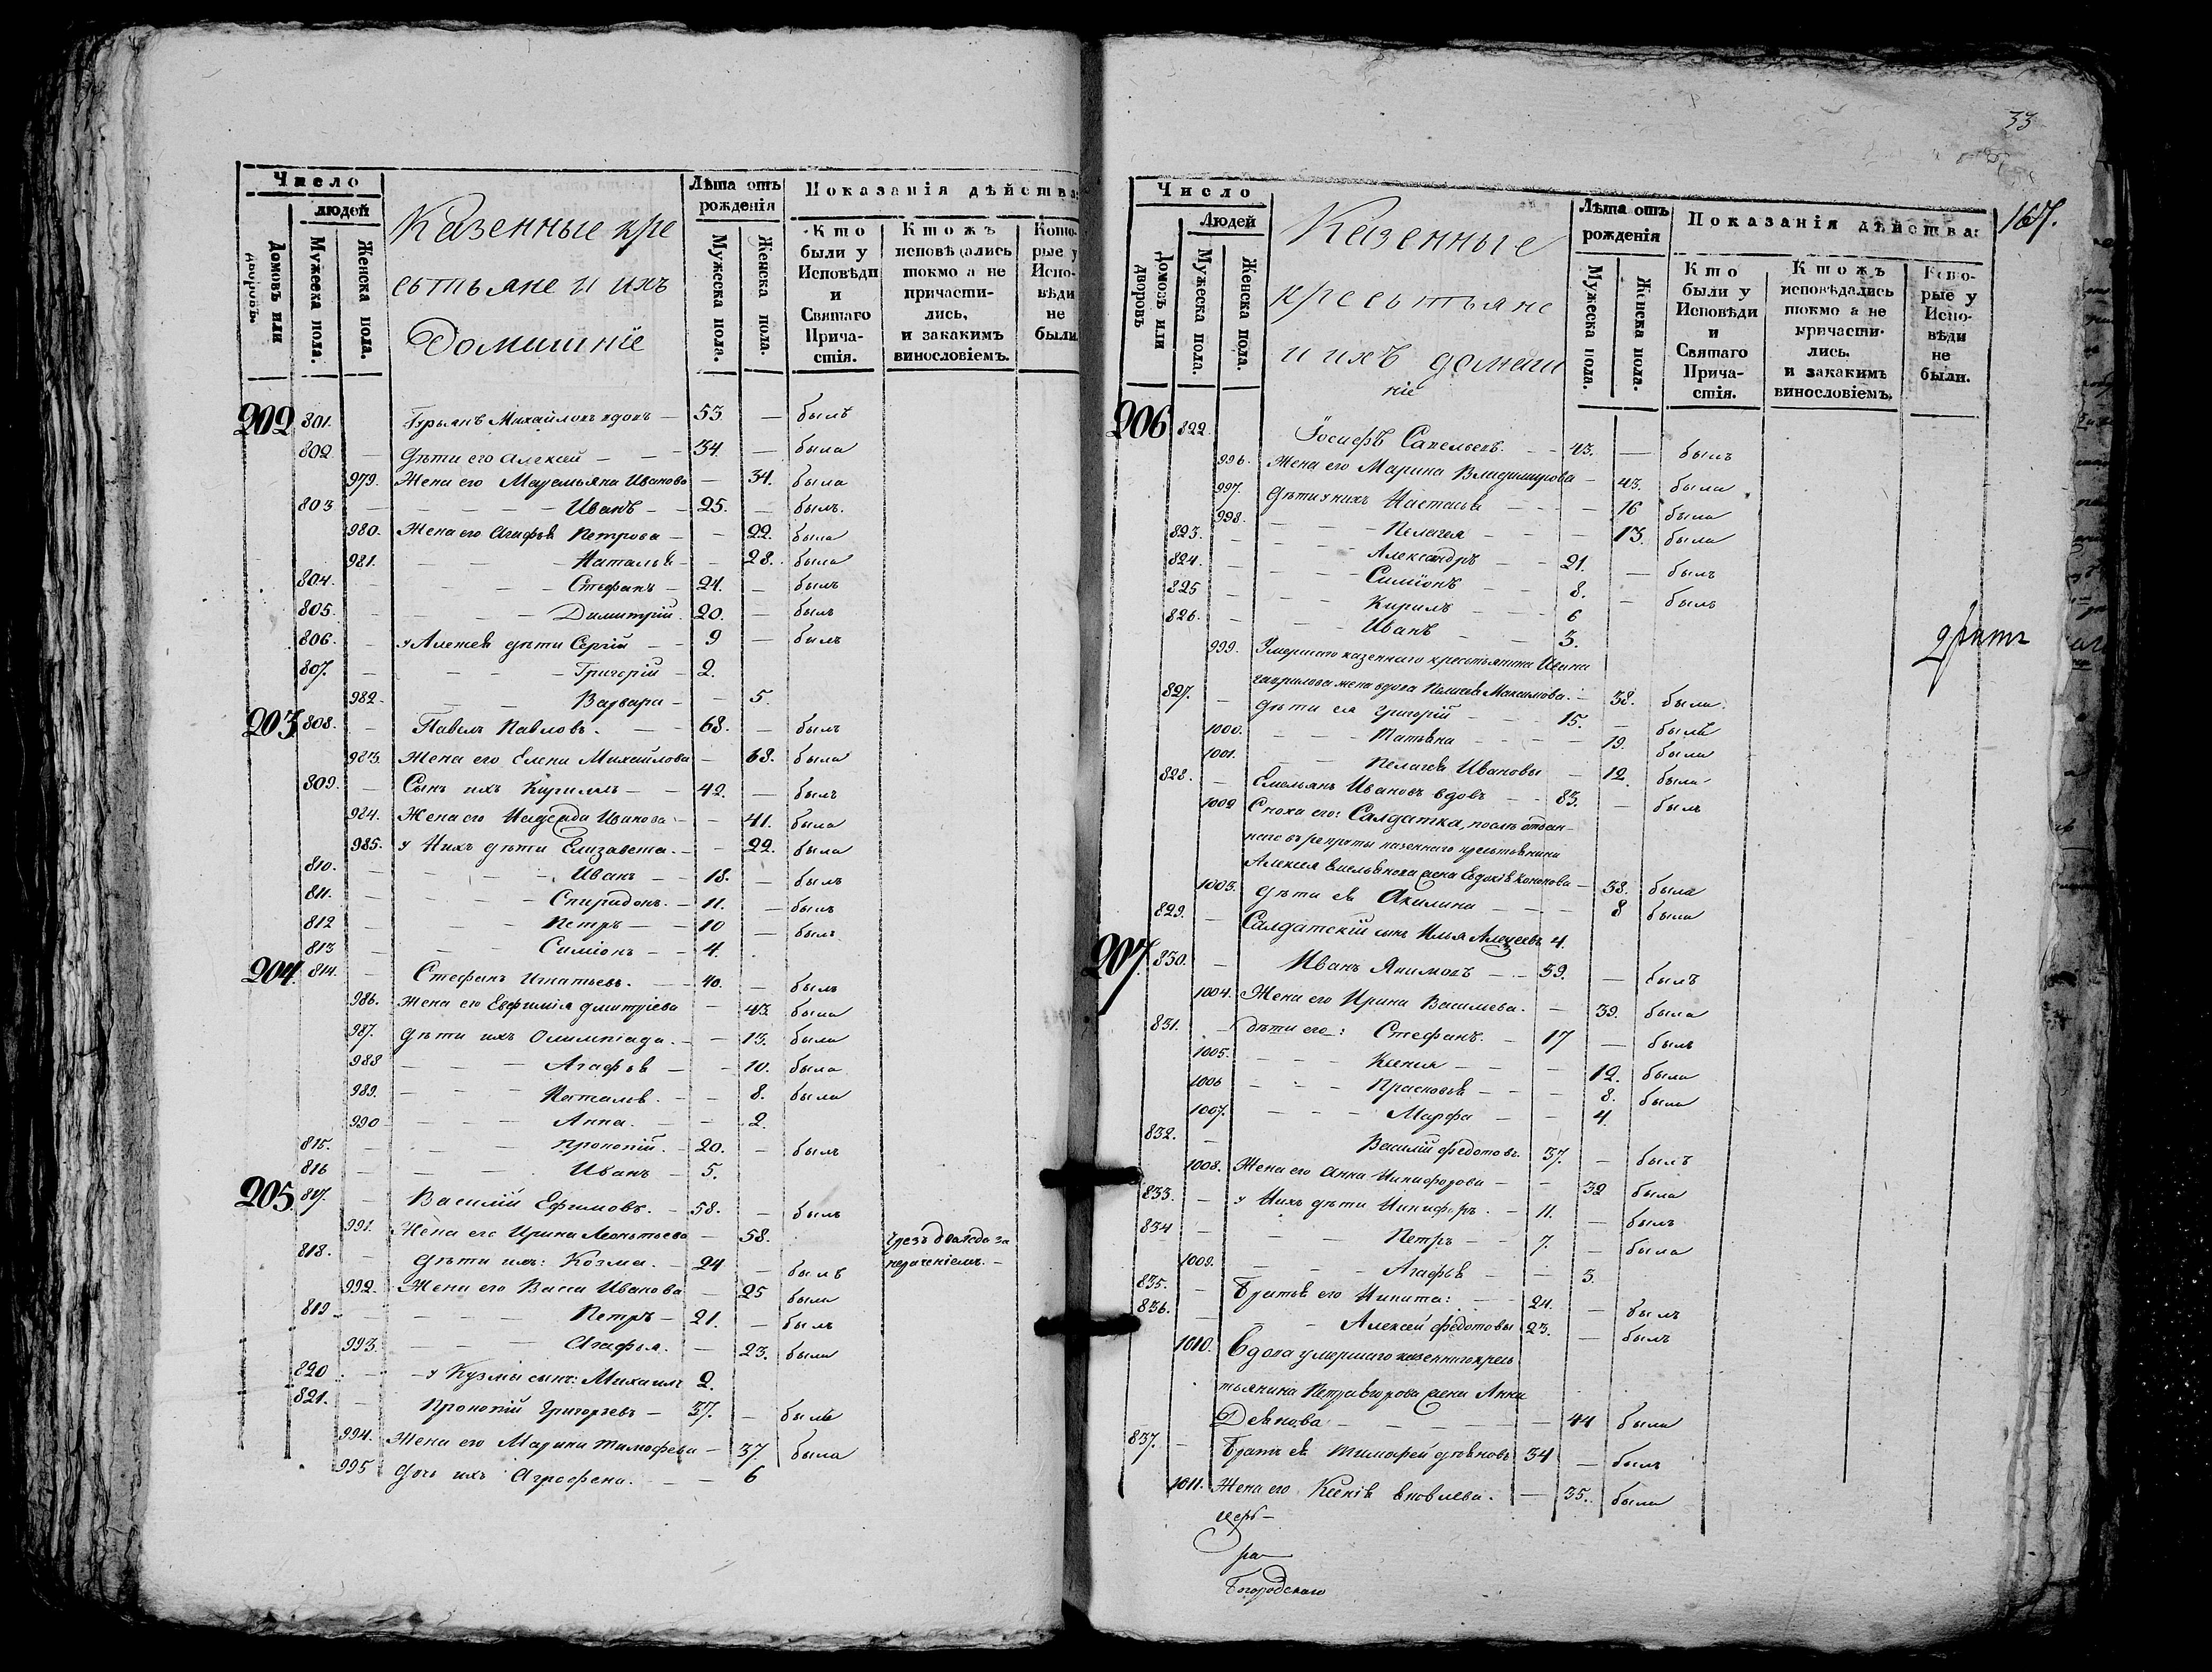 Число
людей
Домовъ или дворовъ.
Мужеска пола.
Женска пола.
Казенные кре
стьяне и ихъ
Домашніе
Лѣта отъ рожденія
Мужеска пола.
Женска пола.
Показанія дѣйства:
Кто были у Исповѣди и Святаго Причастія.
Ктожъ исповѣдались токмо а не причастились, и закакимъ винословіемъ.
Которые у Исповѣди не были.
202 801. Гурьянъ Михайловъ вдовъ — 53 — былъ
802 — Дѣти его Алексій — — 34. — была
979. Жена его Маремьяна Иванова — 34. была
803 — — — — Иванъ — — 25. — былъ.
980. Жена его Агафья Петрова — — 22. была
981. — — — Наталья — — 28. была
804. — — — — Стефанъ — 24. — былъ
805. — — — — Димитрій. 20. — былъ
806. — у Алексѣя дѣти Сергій — — 9 — былъ
807. — — — — Григорій — 2.
982. — — Варвара — — 5.
203 808. — Павелъ Павловъ. — — 68. — былъ
983. Жена его Елена Михайлова — 68. была
809. — Сынъ ихъ Кириллъ — — 42. — былъ
984. Жена его Надежда Иванова — — 41. была
985. у Нихъ дѣти Елизавета. — — 22. была
810. — — — — Иванъ — — 18. — былъ
811. — — — — Спиридонъ. — 11. — былъ
812 — — — — Петръ — — 10 — былъ
813 — — — Симіонъ — — 4.
204. 814. — Стефанъ Игнатьевъ. — — 40. — былъ
986. Жена его Евфимія Дмитріева — 43. была
987. Дѣти ихъ Олимпіада. — — 13. была
988 — — — Агафья — — 10. была
989. — — — Наталья. — — 8. была
990 — — — Анна. — — 2.
815. — — — Прокопій. — 20. — былъ
816 — — — Иванъ — 5.
205. 817. — Василій Ефимовъ. — 58. — былъ
991. Жена его Ирина Леонтьева — 58. чрезъ два года за
нераченіемъ. —
818. — Дѣти ихъ: Козма. — 24 — былъ
992. Жена его Васса Иванова — 25 была
819 — — — — Петръ — 21. — былъ
993. — — — Агафья. — 23. была
820 — — у Кузмы сынъ: Михаилъ 2.
821. — Прокопій Григорьевъ — 37. — былъ
994. Жена его Марина Тимофеева — 37. была
995 Дочь ихъ Агрефена. — — 6
33
167.
Число
Людей
Домовъ или дворовъ
Мужеска пола.
Женска пола.
Казенные
крестьяне
и ихъ домаш
ніе
Лѣта отъ рожденія
Мужеска пола.
Женска пола.
Показанія дѣйства:
Кто были у Исповѣди и Святаго Причастія.
Ктожъ исповѣдались токмо а не причастились. и закакимъ винословіемъ.
Которые у Исповѣди не были.
206 822. Іосифъ Савельевъ. — — 43. — былъ
996. Жена его Марина Владимирова — 43. была
997. Дѣти у нихъ Настасья — — — 16 была
998. — — — Пелагея — — — 13. была
823. — — — — Александръ — — 21. — былъ
824. — — — — Симіонъ — — 8. — былъ
825 — — — — Кирилъ — — 6
826. — — — Иванъ — — 3.
999. Умершаго казеннаго крестьянина Ивана
Гаврилова жена вдова Пелагея Максимова. — 38. была.
827. — Дѣти ея Григорій — — — 15. — былъ
1000. — — — Татьяна — — — 19. была
1001. — — — Пелагея Ивановы — 12. была
828. — Емельянъ Ивановъ вдовъ — — 83. — былъ
1002 Сноха его: Салдатка, послѣ отдан-
наго въ рекруты казеннаго крестьянина
Алексея Емельянова жена Евдокія Кононова — 38. была
1003. Дѣти ея Акилина — — — 8 была
829. — Салдатскій сынъ Илья Алексеевъ 4.
207. 830. — Иванъ Якимовъ — — 39. — былъ
1004. Жена его Ирина Васильева. — 39. была
831. — дѣти его: Стефанъ. — 17 — былъ
1005. — — — Ксенія — — — 12. была
1006 — — — Прасковья — — 8. была
1007. — — — Марфа — — 4.
832. — Василій Федотовъ. 37. — былъ
1008. Жена его Анна Никифорова — — 32 была
833. — у Нихъ дѣти Никифоръ. — 11. — былъ
834 — — — Петръ — — 7. — была
1009. — — — Агафья — — 3.
835. — Братья его Никита: — — 24. — былъ
836. — — Алексей Федотовы 23. — былъ
1010. Вдова умершаго казеннаго кресь
тьянина Петра Егорова жена Анна
Деянова — — — — 44 была
837. — Братъ ея Тимофей Деяновъ 34 — былъ
1011. Жена его Ксенія Яковлева. — 35. была
церк —
ра —
Богородскаго